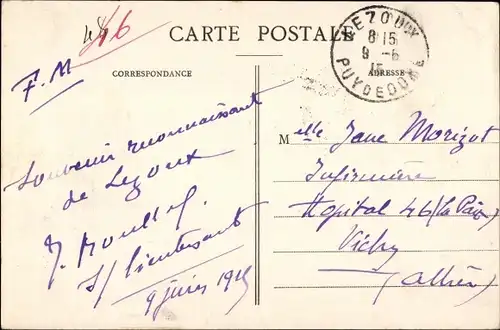 446
CARTE POSTALE
LEZOUX
8 15
9 - 6
15
PUY DE DOME
F.M
CORRESPONDANCE
ADRESSE
Souvenir reconnaissant
de Lezoux
J. Roussel
s/lieutenant
9 juin 1915
Melle Jane Morizot
Infirmière
Hopital 46 (la Paix)
Vichy
(Allier)